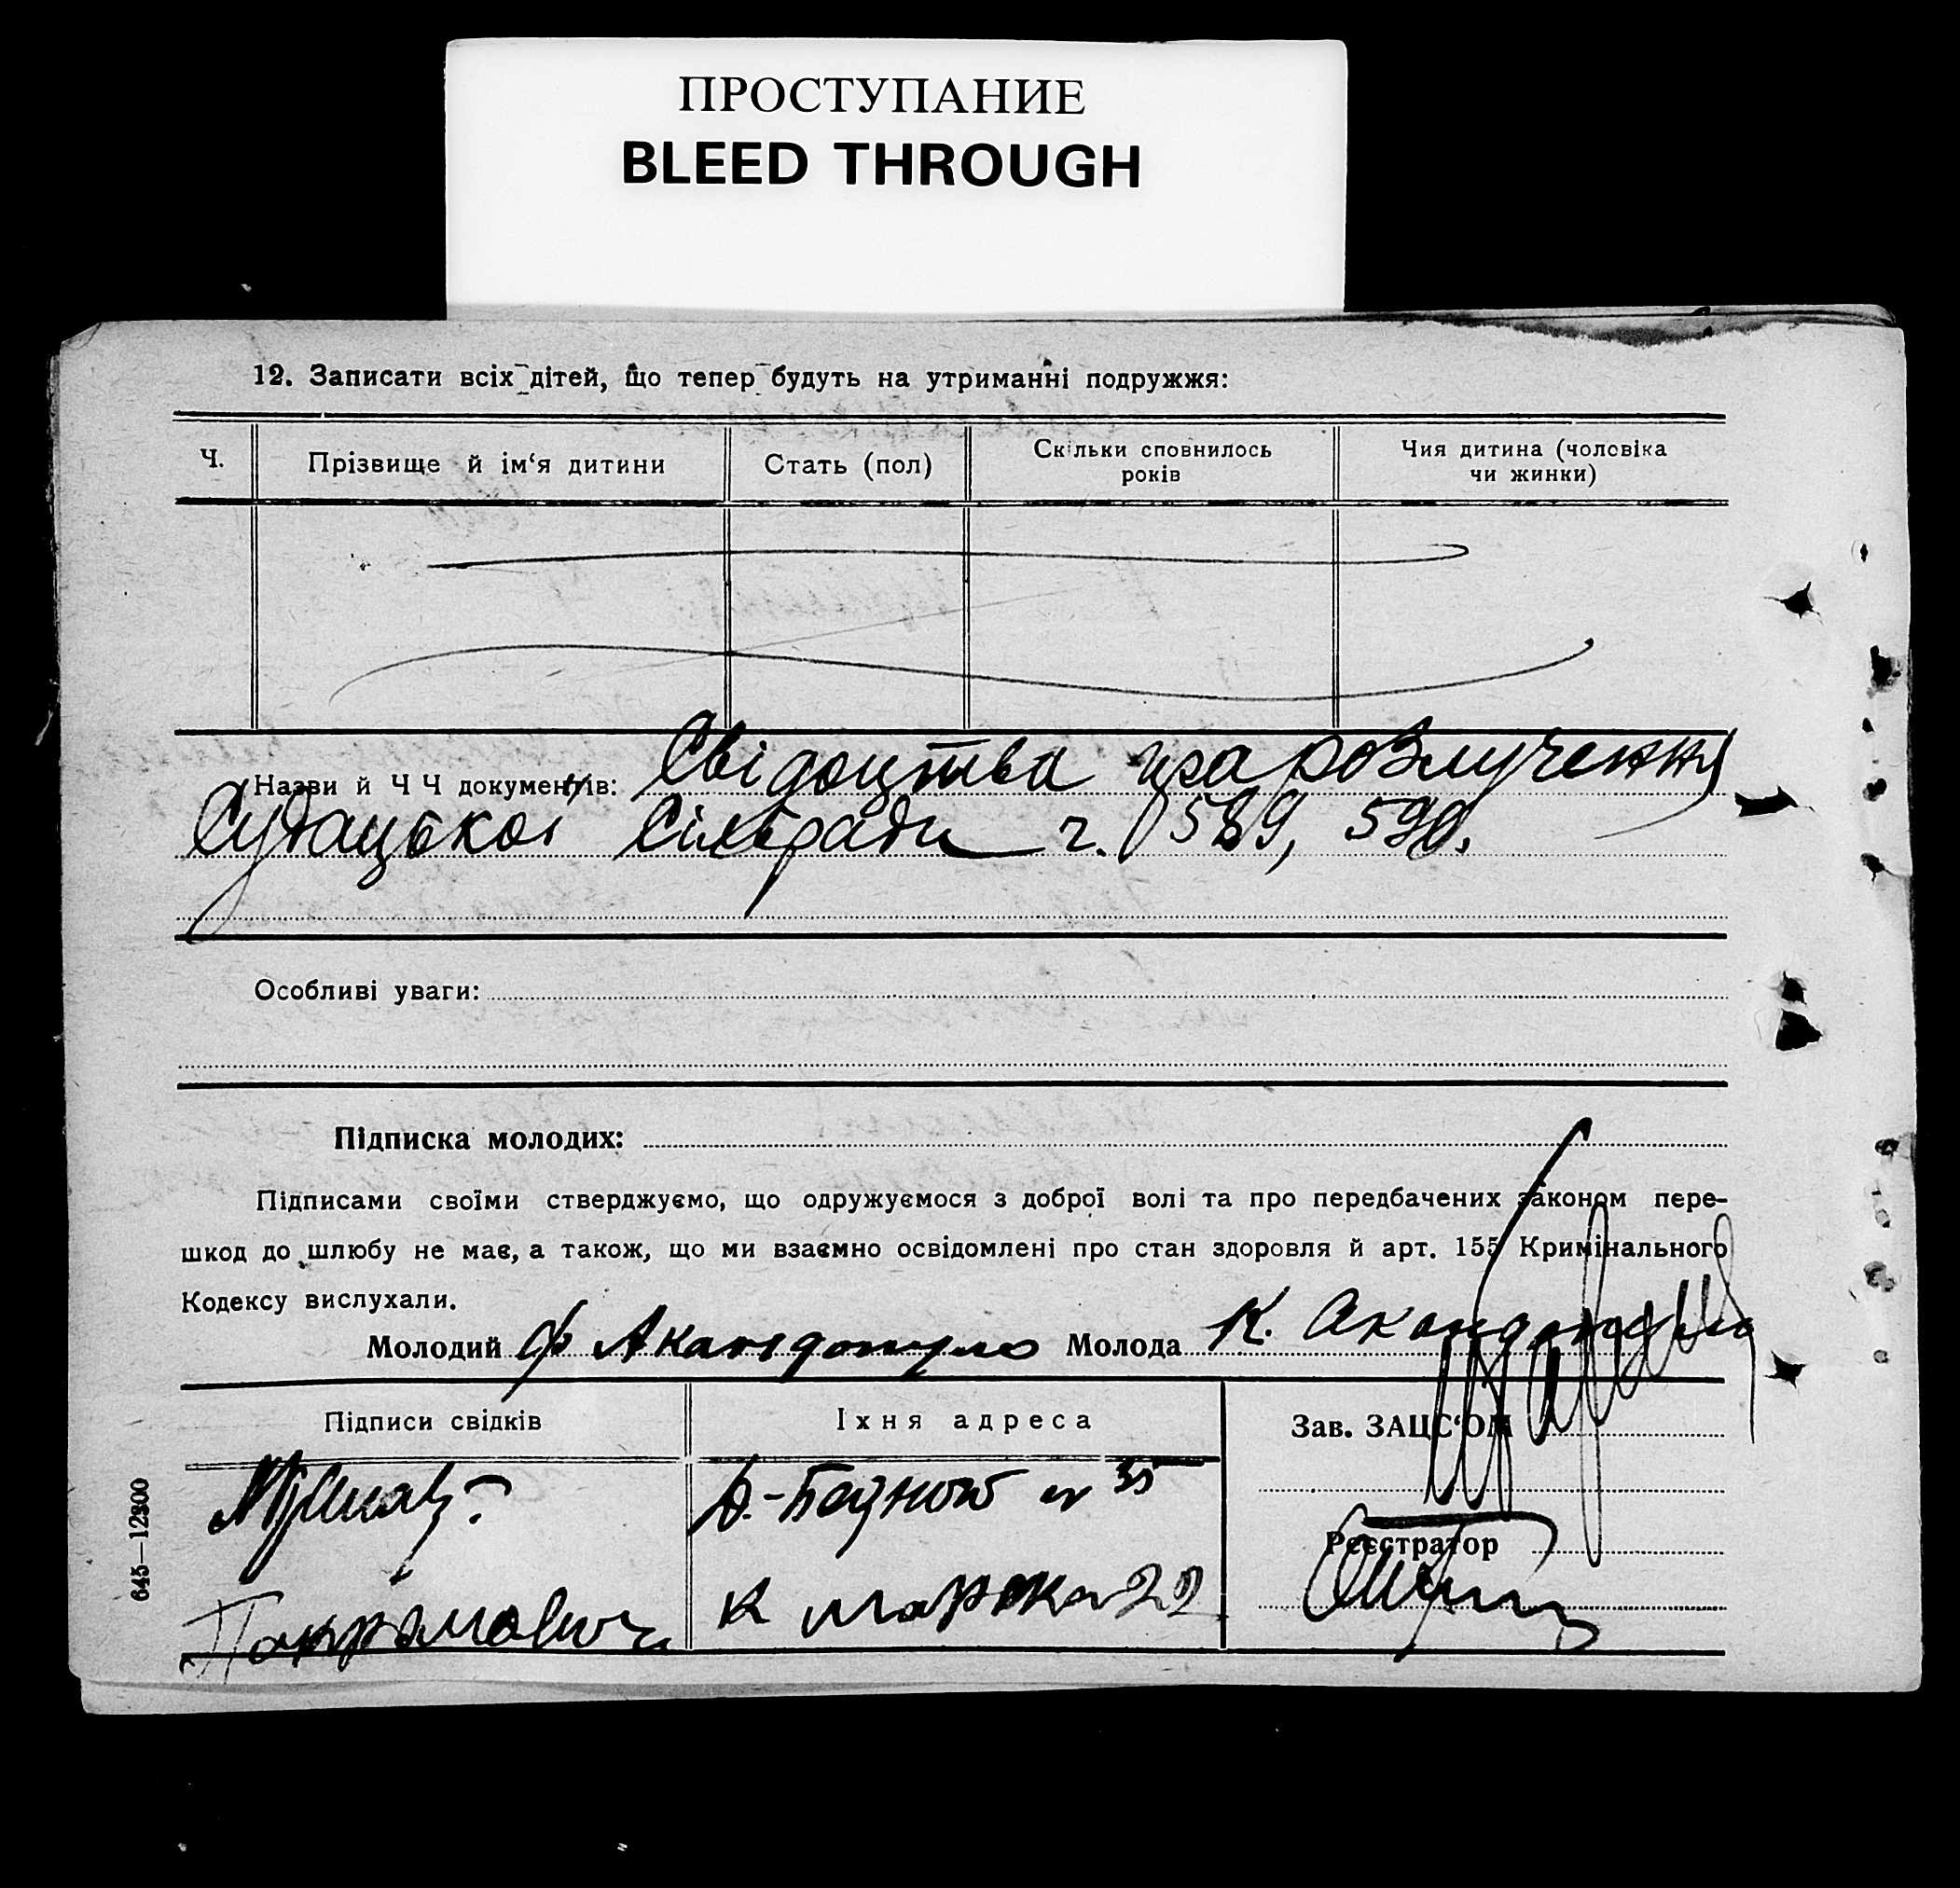 ПРОСТУПАНИЕ
BLEED THROUGH
12. Записати всіх дітей, що тепер будуть на утриманні подружжя:
Ч.
Прізвище й ім‘я дитини
Стать (пол)
Скільки сповнилось
років
Чия дитина (чоловіка
чи жинки)
Назви й Ч Ч документів: Свідоцтва про розлучення
Судацької Сільради ч. 589, 590.
Особливі уваги:
Підписка молодих:
Підписами своїми стверджуємо, що одружуємося з доброї волі та про передбачених законом пере-
шкод до шлюбу не має, а також, що ми взаємно освідомлені про стан здоровля й арт. 155 Кримінального
Кодексу вислухали.
Молодий Ф Акандопуло Молода К. Акандопуло
Підписи свідків
Їхня адреса
Зав. ЗАЦС‘ОМ
35
Реєстратор
К маркса 22
645—12300